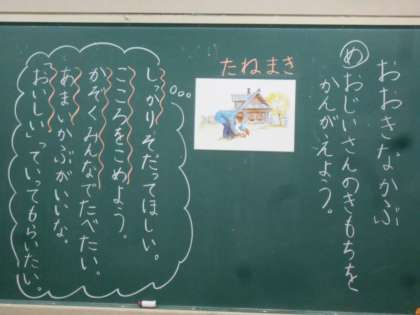 おおきなかぶ
め おじいさんのきもちを
かんがえよう。
たねまき
しっかりそだってほしい。
こころをこめよう。
かぞくみんなでたべたい。
あまいかぶがいいな。
おいしいっていってもらいたい。